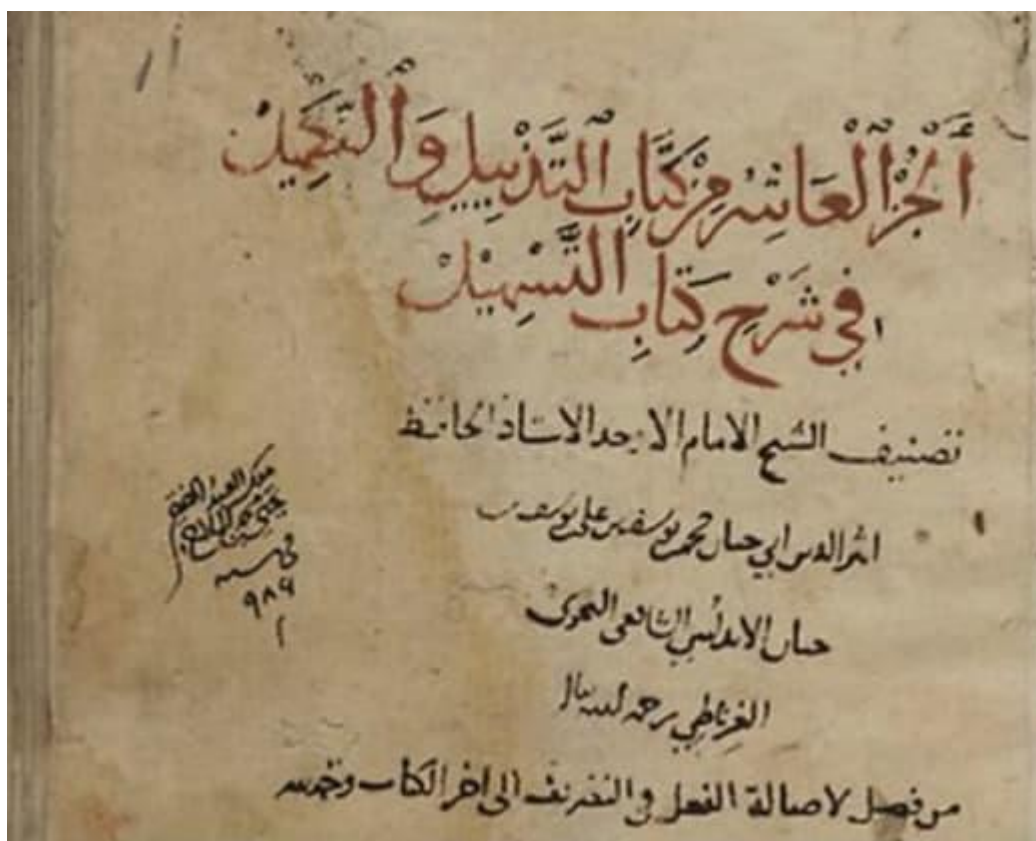 الجزء العاشر من كتاب التذييل والتكميل
في شرح كتاب التسهيل
تصنيف الشيخ الامام الاوحد الاستاذ الحافظ
اثير الدين ابي حيان محمد بن يوسف بن علي بن يوسف بن
حيان الاندلسي الشافعي النحوي
الغرناطي رحمه الله تعالى
من فصل لاصالة الفعل في التصريف الى اخر الكتاب
ملك العبد الفقير
في سنة
٩٨٩